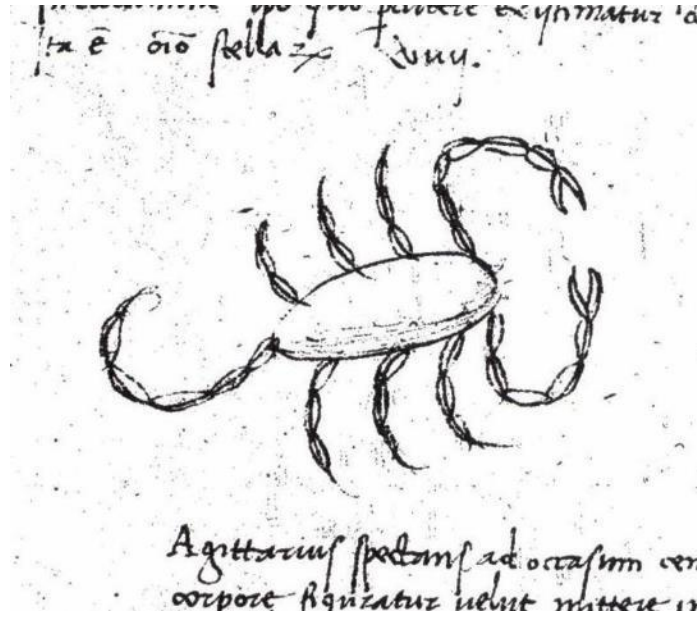 ipo quo mittere existimatur
ta ē oīo stellaꝝ xviiij.
Agittarius spectans ad occasum cen
corpore figuratur velut mittere in